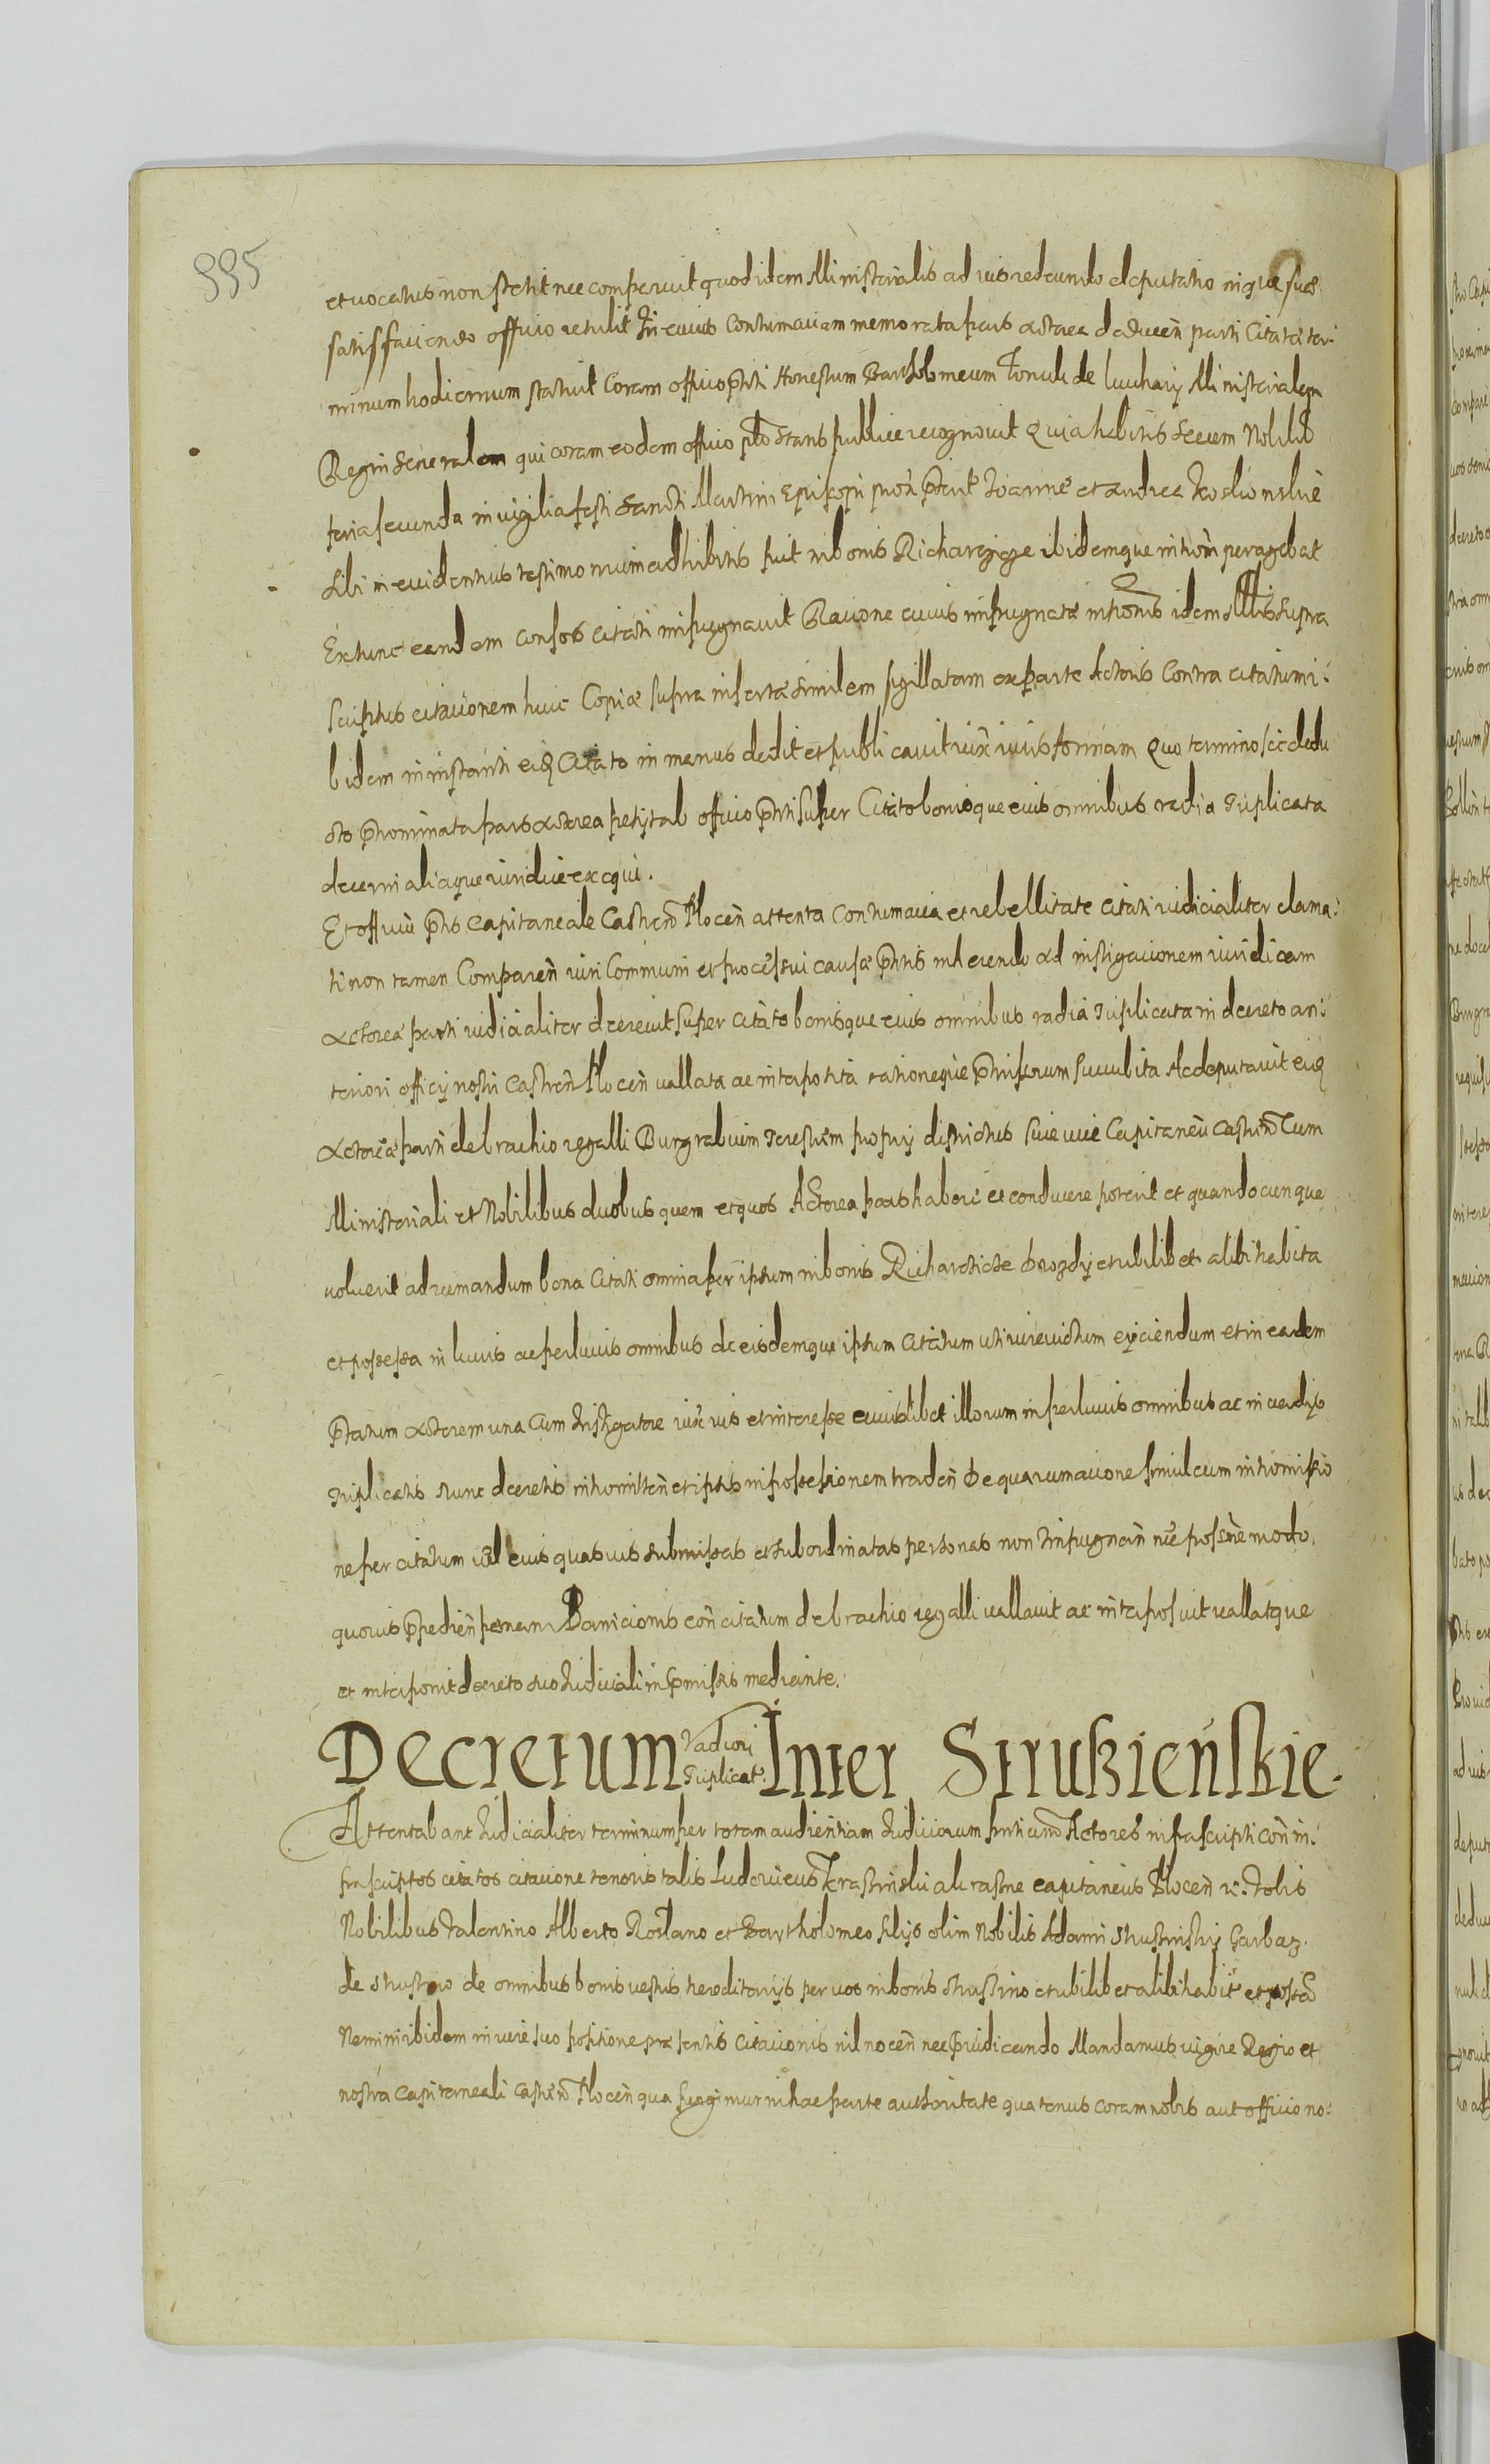 995
et vocatus non stetit nec comparuit quod idem Ministerialis ad ius redeundo deputatio nique suae
satisfaciendo officio retulit In cuius Contumaciam memorata pars actorea deducen parti Citatae ter-
minum hodiernum statuit Coram officio pnti Honestum Bartholomeum de Ministerialem
Regni Generalem qui coram eodem officio stans publice recognovit Quia habitis secum Nobilib
feria secunda in vigilia festi Sancti Martini Episcopi prox Joanne et Andrea
sibi in evidentius testimonium adhibitis fuit in bonis ibidemque introm peragebat
Extunc eandem consors citati impugnavit Racione cuius impugnatae idem supra
scriptus citacionem huic Copiae supra insertae similem sigillatam ex parte Actoris Contra citatum i-
bidem in instanti eidq Citato in manus dedit et publicavit iux iuris formam Quo termino sic dedu
cto pnominata pars actorea petyt ab officio pnti super Citato bonisque eius omnibus vadia Triplicata
decerni aliaque iuridice exequi.
Et officiu pns Capitaneale Castren Plocen attenta Contumacia et rebellitate citati iudicialiter clama-
ti non tamen Comparen iuri Communi et processui causae pntis inherendo ad instigacionem iuridicam
actoreae parti iudicialiter decrevit super citato bonisque eius omnibus vadia Triplicata in decreto an-
teriori officij nostri Castren Plocen vallata ac interposita rationeque succubita Ac deputavit eidq
actoreae parti de brachio regalli Burgrabium Terestrem proprij districtus sive vice Capitaneu Castren Cum
Ministeriali et Nobilibus duobus quem et quos Actorea pars habere et conducere poterit et quandocunque
voluerit ad reumandum bona Citati omnia per ipsum in bonis et ubilibet alibi habita
et possessa in lucris ac perlucris omnibus de eisdemque ipsum citatum uti iurevictum eyiciendum et in eadem
ptatum actorem una Cum Instigatore iux ius et interesse cuiuslibet illorum in perlucris omnibus ac in vadijs
triplicatis nunc decretis intromitten et ipsis in possessionem traden De quarum racione simul cum intromissio
ne per citatum vel eius quasvis submissas et subordinatas personas non Impugnan nec possne modo
quovis ppedien penam Bannicionis con citatum de brachio regalli vallavit ac interposuit vallatque
et interponit decreto suo Iudiciali in pmissis mediante.
Decretum Vadiorj Triplicat. Inter Strußieńskie.
Attentabant Iudicialiter terminum per totam audientiam Iudiciorum pntium Actores infrascripti con in-
frascriptos citatos citacione tenoris talis Ludovicus Krasinski capitaneus Plocen Vobis
Nobilibus Valentino Alberto et Bartholomeo filijs olim Nobilis Adami
de de omnibus bonis vestris hereditarijs per vos in bonis et ubilibet alibi habit et possess
Nemini ibidem in iure suo positione praesentis Citacionis nil nocen nec pudicando Mandamus vigore Regio et
nostra Capitaneali Castren Plocen qua fungimur in hac parte authoritate quatenus coram nobis aut officio no-